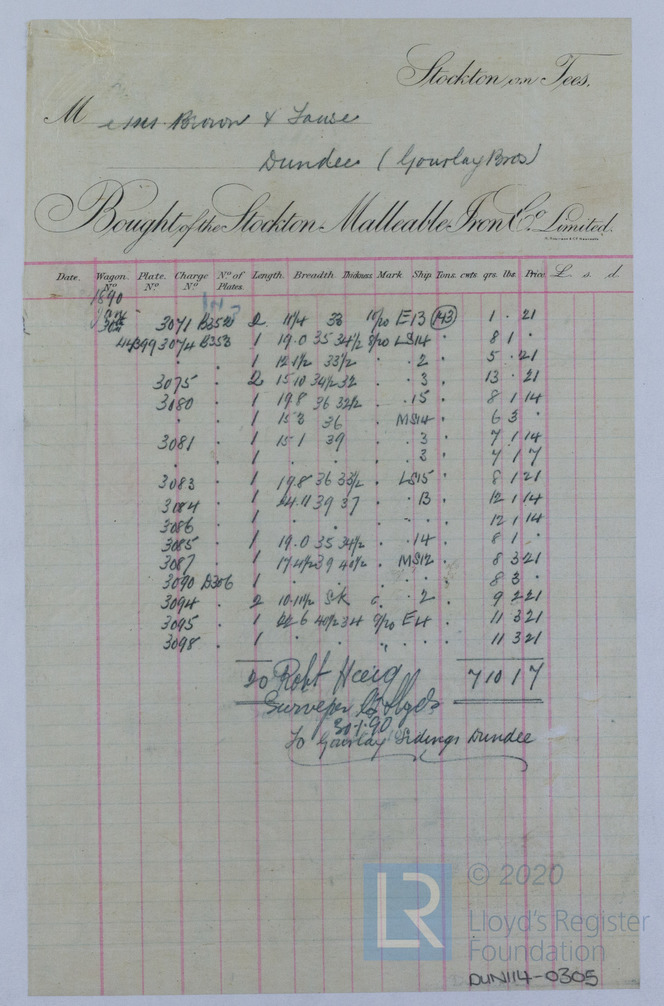 Stockton on Tees,
Messrs Brown &
Dundee (Gourlay Bros)
Bought of the Stockton Malleable Iron Co. Limited.
Date. Wagon No. Plate. No. Charge No. No. of Plates. Length. Breadth. Thickness. Mark Ship Tons. cwts. qrs. lbs. Price £ s. d.
1890
3071 B352 2 33 10/20 E13 143 1 . 21
3074 B353 1 19.0 35 34½ LS14 8 1 .
1 33½ . 2 5 . 21
3075 . 2 15 10 34½ 32 . . 3 . 13 . 21
3080 . 1 19.8 36 32½ . . 15 . 8 1 14
. . 1 15 3 36 . MS14 . 6 3 .
3081 . 1 15 1 39 . . 3 . 7 1 14
. . 1 . . . . 3 . 7 1 7
3083 . 1 19.8 36 33½ . LS15 . 8 1 21
3084 . 1 24.11 39 37 . . 13 . 12 1 14
3086 . 1 . . . . . 12 1 14
3085 . 1 19.0 35 34½ . . 14 . 8 1 .
3087 . 1 17.4½ 39 40½ . MS12 . 8 3 21
3090 B306 1 . . . . . 8 3 .
3094 . 2 10.11½ SK . 2 . 9 2 21
3095 . 1 22 6 40½ 34 9/20 E4 . 11 3 21
3098 . 1 . . " . . 11 3 21
20 Robt Haig 7 10 1 7
Surveyor to Lloyds
30.1.90
To Gourlay Sidings Dundee
© 2020
LR
Lloyd's Register
Foundation
DUN114-0305